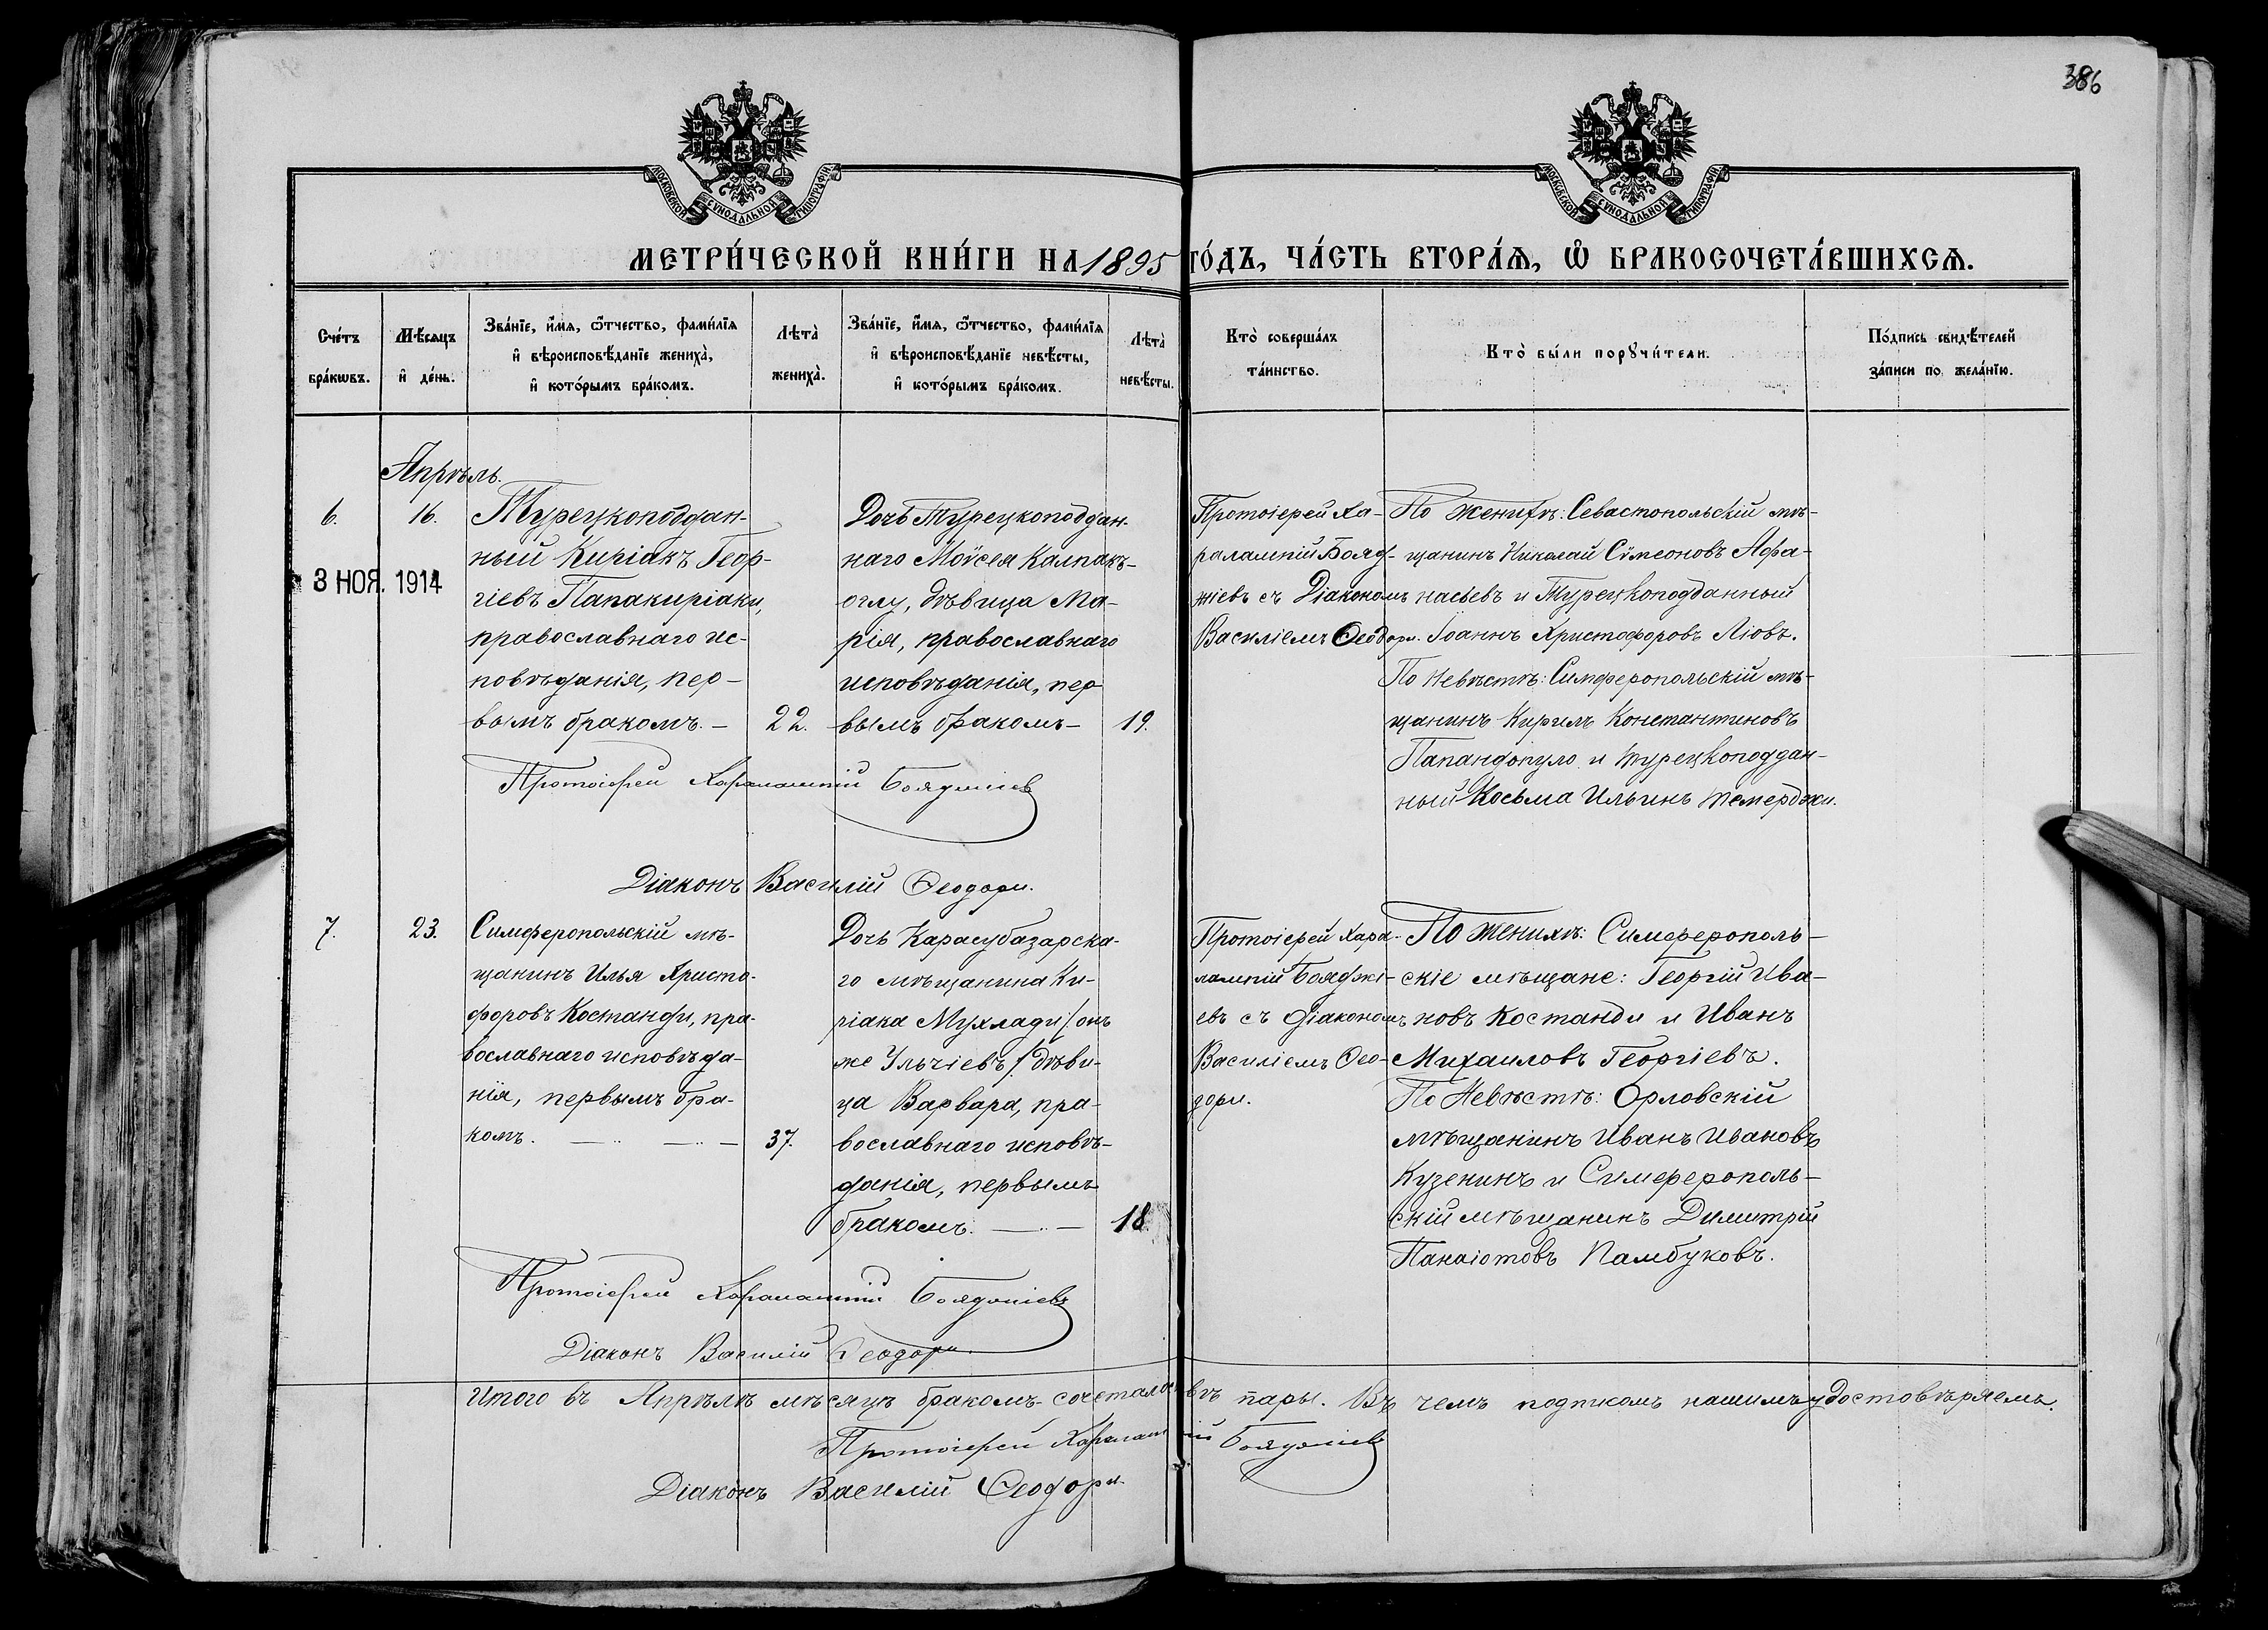 386
МОСКОВСКОЙ СѴНОДАЛЬНОЙ ТИПОГРАФІИ
МОСКОВСКОЙ СѴНОДАЛЬНОЙ ТИПОГРАФІИ
МЕТРИ́ЧЕСКОЙ КНИ́ГИ НА 1895 ГО́ДЪ, ЧА́СТЬ ВТОРА́Ѧ, Ѽ БРАКОСОЧЕТА́ВШИХСѦ.
Сче́тъ
бра́кѡвъ.
Мѣ́сяцъ
и҆ де́нь.
Зва́нїе, и҆́мѧ, ѻ҆́тчество, фами́лїѧ
и҆ вѣроисповѣ́данїе жениха̀,
и҆ кото́рымъ бра́комъ.
Лѣта̀
жениха̀.
Зва́нїе, и҆́мѧ, ѻ҆́тчество, фами́лїѧ
и҆ вѣроисповѣ́данїе невѣ́сты,
и҆ кото́рымъ бра́комъ.
Лѣта̀
невѣ́сты.
Кто̀ соверша́лъ
та́инство.
Кто̀ бы́ли порꙋчи́тели.
По́дпись свидѣ́телей
за́писи по жела́нїю.
Апрѣль.
6.
16.
3 НОЯ. 1914
Турецкоподдан-
ный Киріакъ Геор-
гіевъ Папакиріаки,
православнаго ис-
повѣданія, пер-
вымъ бракомъ. —
22.
Дочь Турецкоподдан-
наго Моѵсея Калпакъ-
оглу, дѣвица Ма-
рія, православнаго
исповѣданія, пер
вымъ бракомъ —
19.
Протоіерей Ха-
ралампій Бояд-
жіевъ съ Діакономъ
Василіемъ Ѳеодори.
По женихѣ: Севастопольскій мѣ-
щанинъ Николай Сѵмеоновъ Афа-
насьевъ и Турецкоподданный
Іоаннъ Христофоровъ Ліовъ.
По Невѣстѣ: Симферопольскій мѣ-
щанинъ Кирилъ Константиновъ
Папандопуло и турецкоподдан-
ный Косьма Ильинъ Темерджи.
Протоіерей Харалампій Бояджіевъ
Діаконъ Василій Ѳеодори.
7.
23.
Симферопольскій мѣ-
щанинъ Илья Христо-
форовъ Костанди, пра-
вославнаго исповѣда-
нія, первымъ бра-
комъ. — —
37.
Дочь Карасубазарска-
го мѣщанина Ки-
ріака Мухлади /онъ
же Ульчіевъ/ дѣви-
ца Варвара, пра-
вославнаго исповѣ-
данія, первымъ
бракомъ. —
18
Протоіерей Хара-
лампій Бояджі-
евъ съ діакономъ
Василіемъ Ѳео-
дори.
По женихѣ: Симферополь-
скіе мѣщане: Георгій Ива-
новъ Костанди и Иванъ
Михаиловъ Георгіевъ.
По Невѣстѣ: Орловскій
мѣщанинъ Иванъ Ивановъ
Кузенинъ и Симферополь-
скій мѣщанинъ Димитрій
Панаіотовъ Памбуковъ.
Протоіерей Харалампій Бояджіевъ
Діаконъ Василій Ѳеодори.
Итого въ Апрѣлѣ мѣсяцѣ бракомъ сочеталось двѣ пары. Въ чемъ подписомъ нашимъ удостовѣряемъ.
Протоіерей Харалампій Бояджіевъ
Діаконъ Василій Ѳеодори.